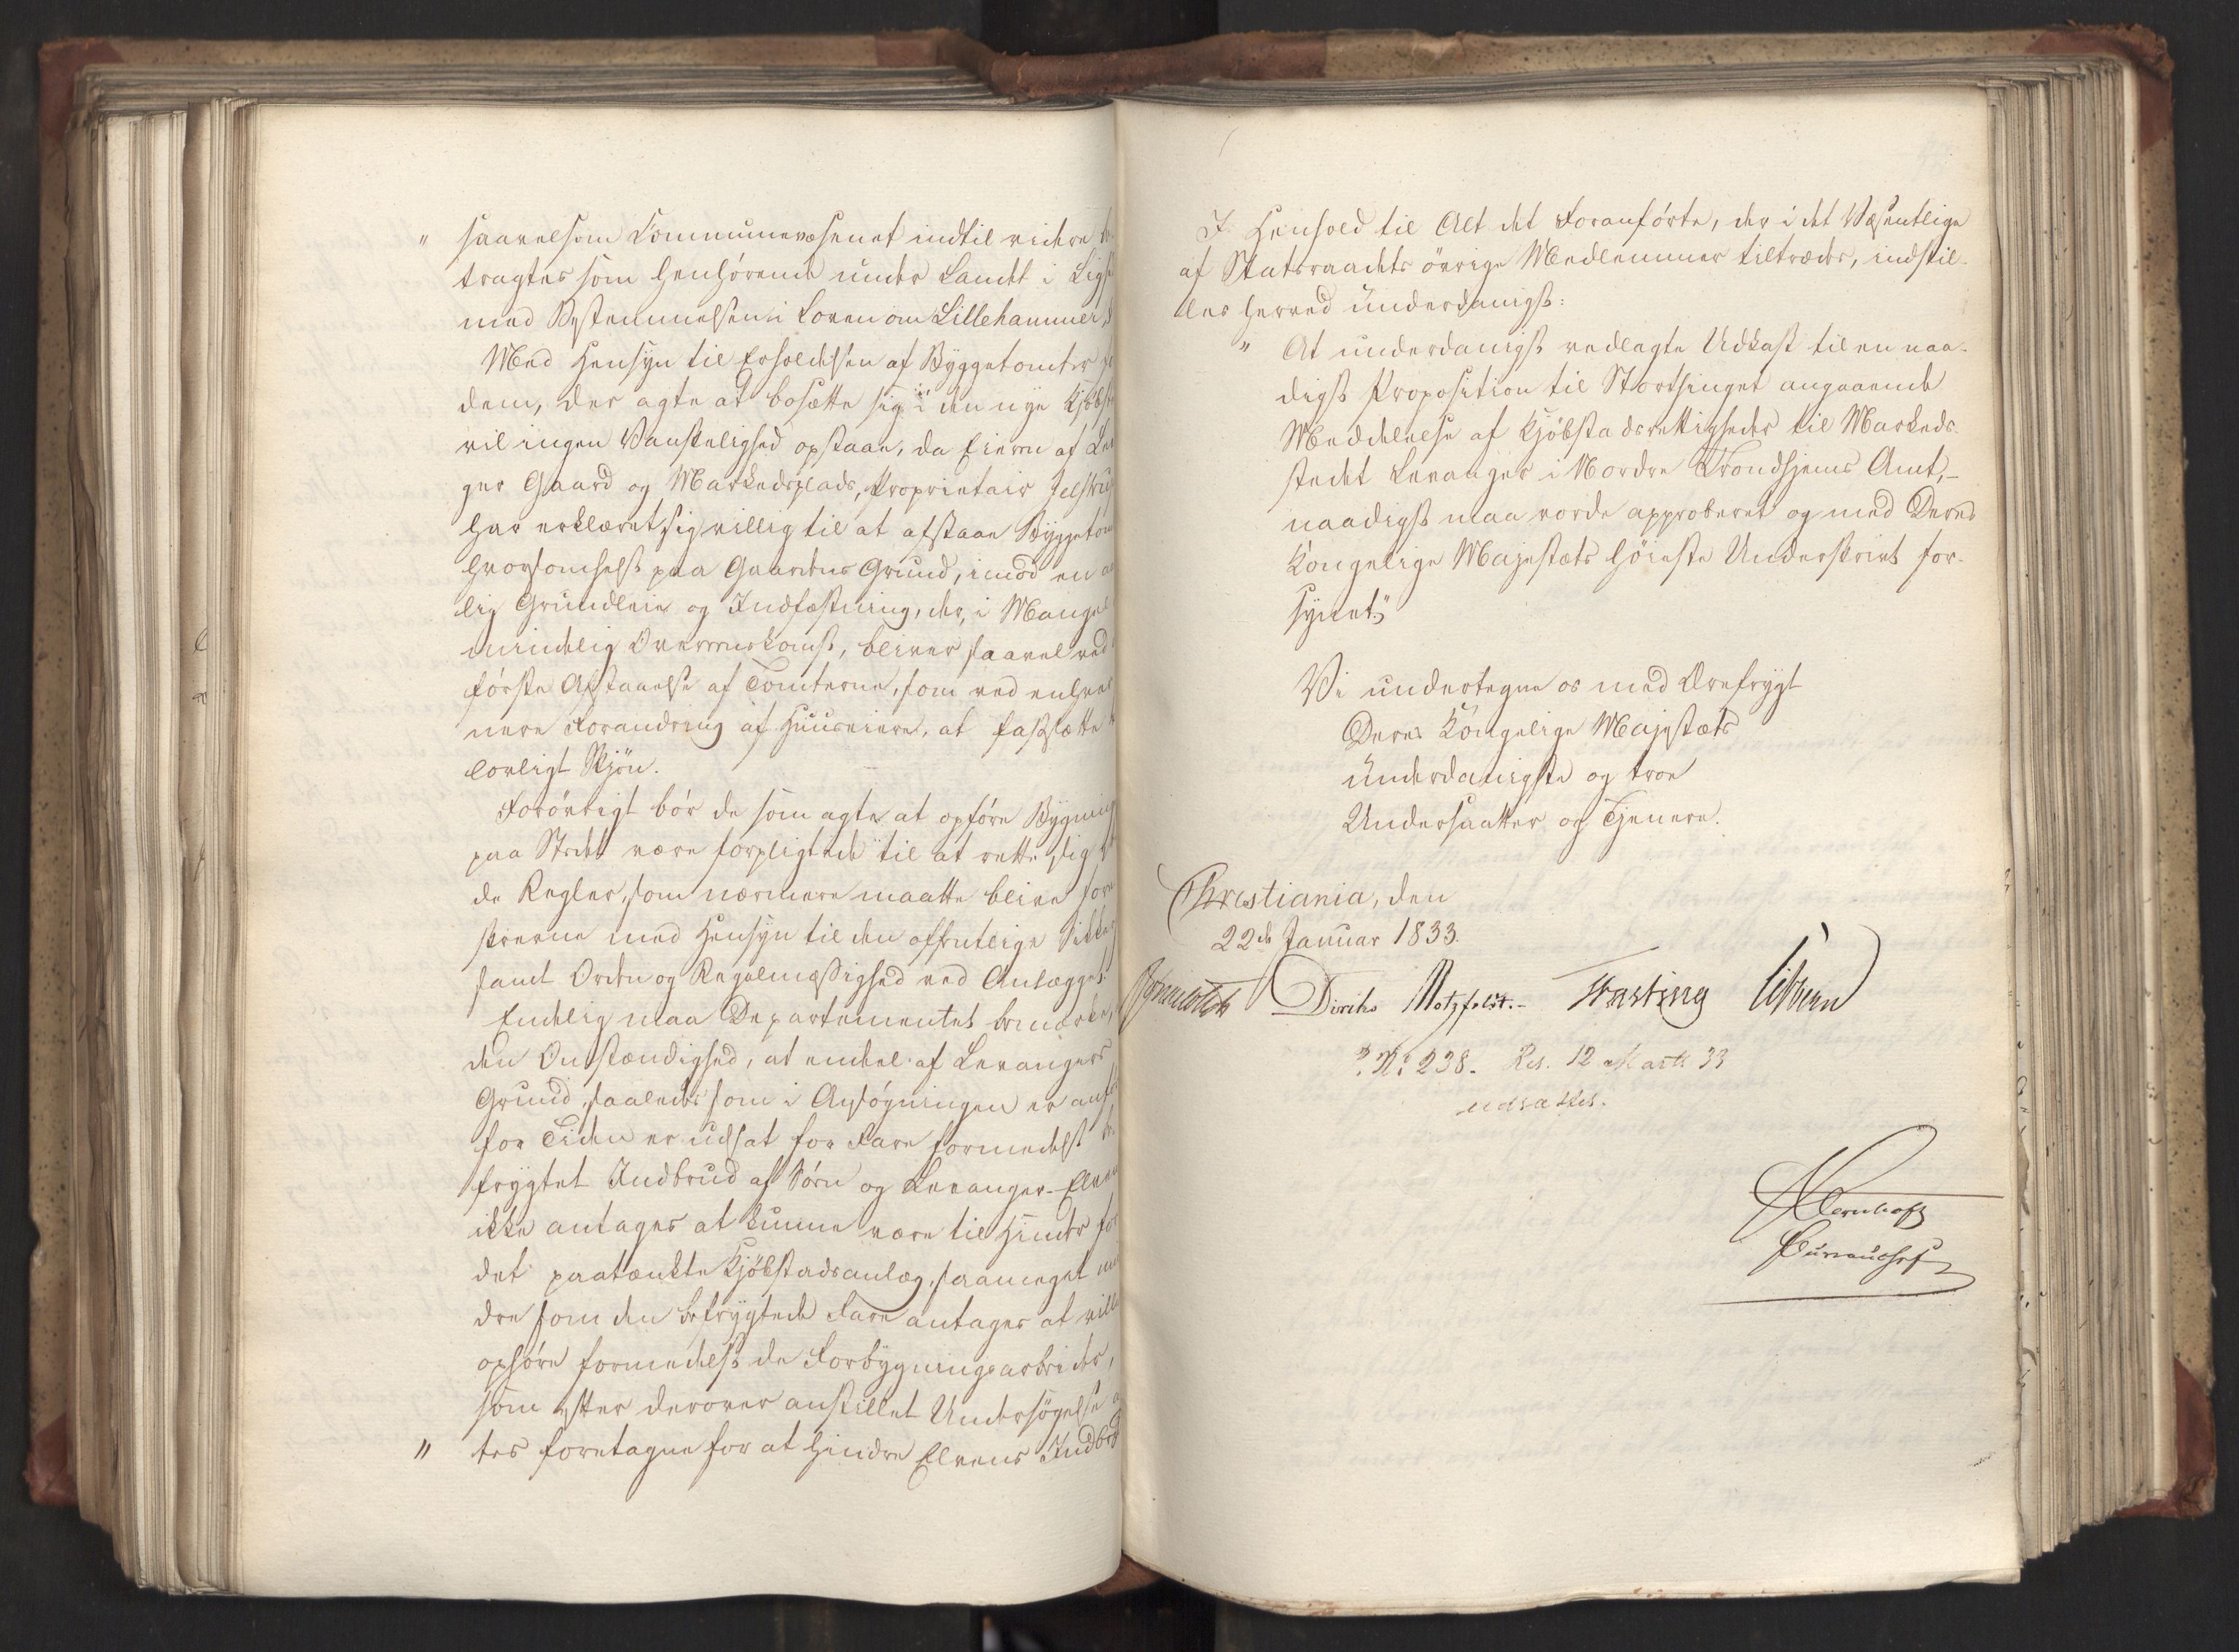 " saavelsom Communevæsenet indtil videre be-
tragtes som henhørende under Landet i Lig
med Bestemmelsen i Loven om Lillehammer,
Med Hensyn til Erholdelsen af Byggetomter
dem, der agte at bosætte sig i den nye Kjøbst
vil ingen Vanskelighed opstaae, da Eieren af Le
ger Gaard og Markedsplads, Proprietair Jelstru
har erklæret sig villig til at afstaae Byggetom
hvorsomhelst paa Gaardens Grund, imod en a
lig Grundleie og Indfæstning, der, i Mangel
mindelig Overenskomst, bliver saavel ved
første Afstaaelse af Tomterne, som ved enhver
nere Forandring af Huuseiere, at fastsætte
lovligt Skjøn.
Forøvrigt bør de som agte at opføre Bygning
paa Stedet være forpligtede til at rette sig
de Regler, som nærmere maatte blive fore
skrevne med Hensyn til den offentlige Sikker
samt Orden og Regelmæssighed ved Anlægget.
Endelig maa Departementet bemærke,
den Omstændighed, at endeel af Levangers
Grund, saaledes som i Ansøgningen er anfø
for Tiden er udsat for Fare formedelst be-
frygtet Indbrud af Søen og Levanger-Elven
ikke antages at kunne være til Hinder for
det paatænkte Kjøbstadsanlæg, saameget min
dre som den befrygtede Fare antages at ville
ophøre formedelst de Forbygningsarbeider,
som efter derover anstillet Undersøgelse a
" tes foretagne for at hindre Elvens Indbrud
I Henhold til Alt det Foranførte, der i det Væsentlige
af Statsraadets øvrige Medlemmer tiltrædes, indstil-
les herved underdanigst:
" At underdanigst vedlagte Udkast til en naa-
digst Proposition til Storthinget angaaende
Meddelelse af Kjøbstadsrettigheder til Markeds-
stedet Levanger i Nordre Trondhjems Amt,-
naadigst maa vorde approberet og med Deres
Kongelige Majestæts høieste Underskrivt for-
synet."
Vi undertegne os med Ærefrygt
Deres Kongelige Majestæts
underdanigste og troe
Undersaatter og Tjenere.
Christiania, den
22de Januar 1833.
Diriks Motzfeldt.- Fasting Sibbern
No: 238. Res. 12 Marts 33
udsættes.
Bernhoft
Bureauchef